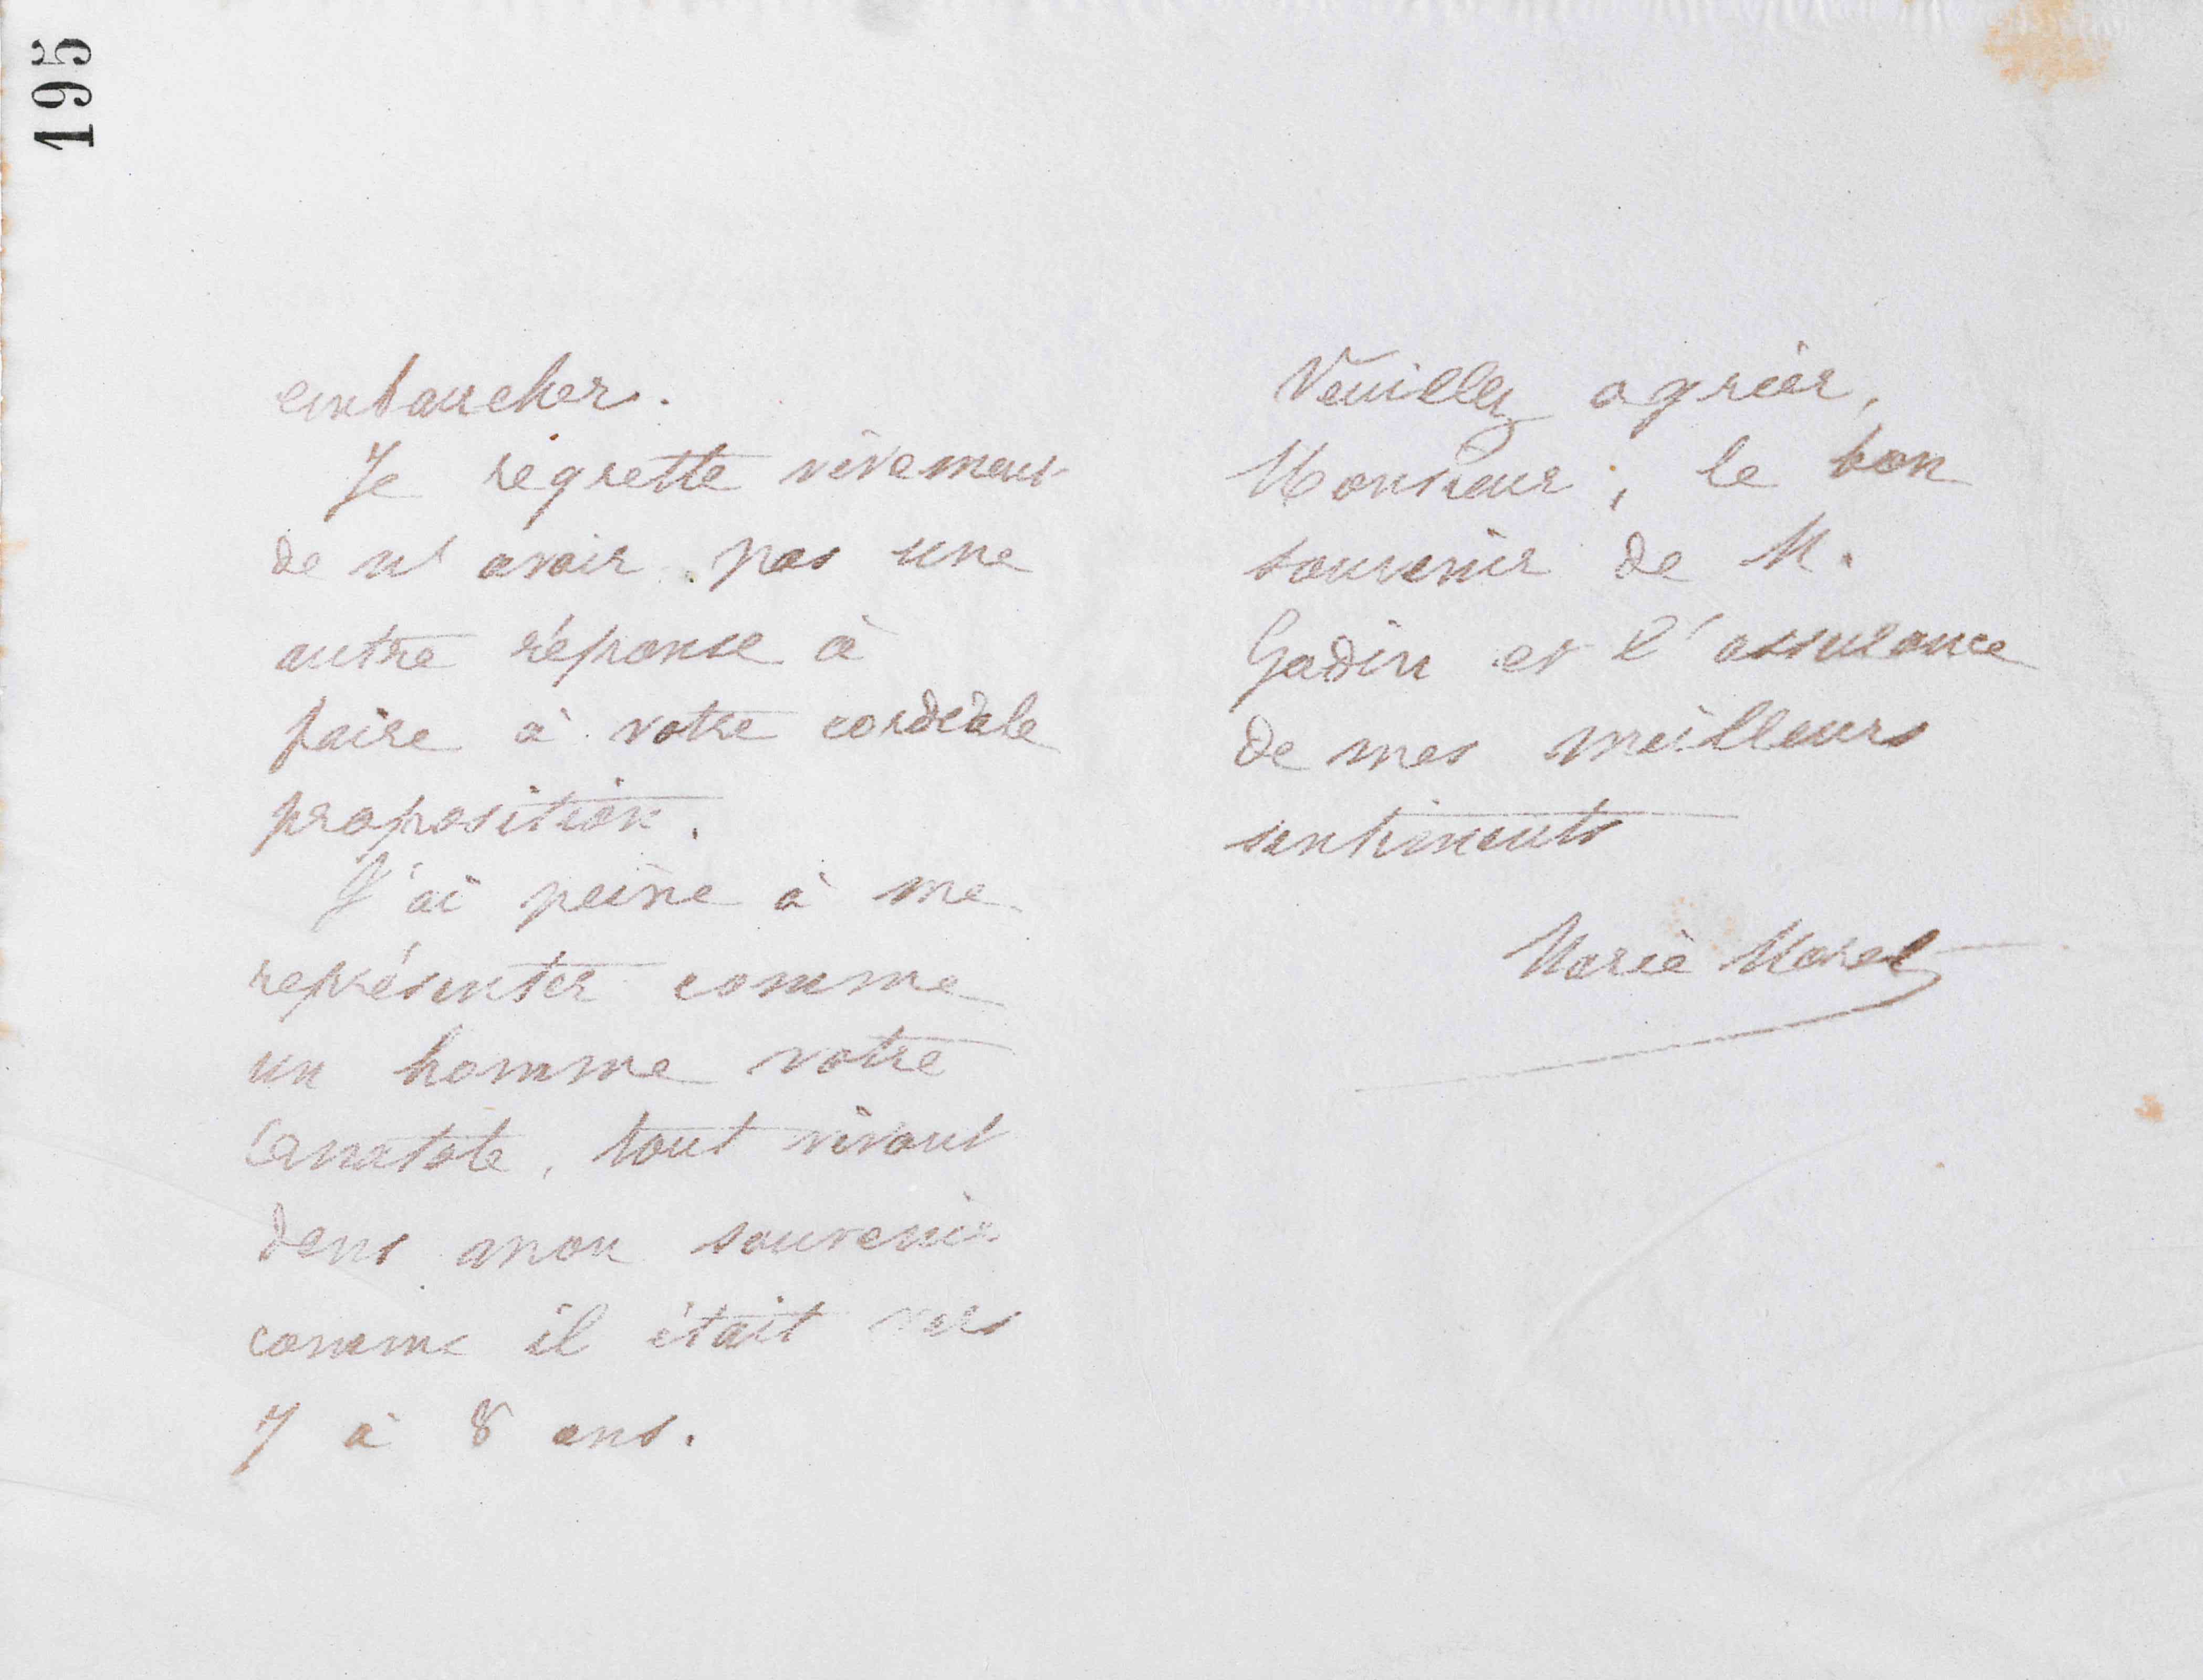 195
embaucher.
Je regrette vivement
de n'avoir pas une
autre réponse à
faire à votre cordiale
proposition.
J'ai peine à me
représenter comme
un homme votre
Anatole, tout vivant
dans mon souvenir
comme il était vers
7 à 8 ans.
Veuillez agréer,
Monsieur, le bon
souvenir de M.
Godin et l'assurance
de mes meilleurs
sentiments
Marie Moret